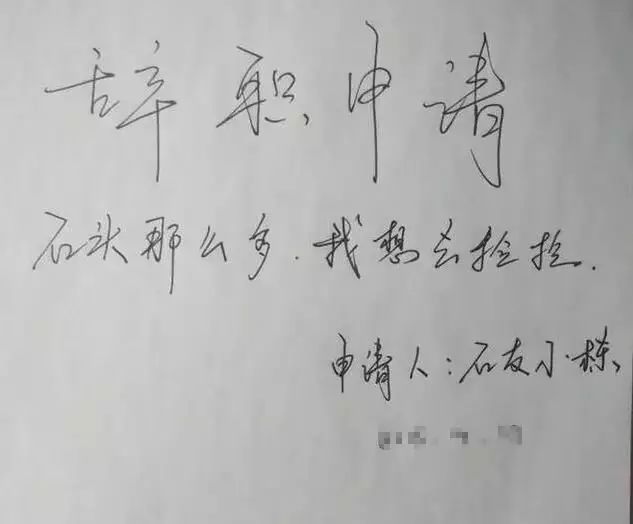 辞职申请
石头那么多.我想去捡捡.
申请人:石友小栋